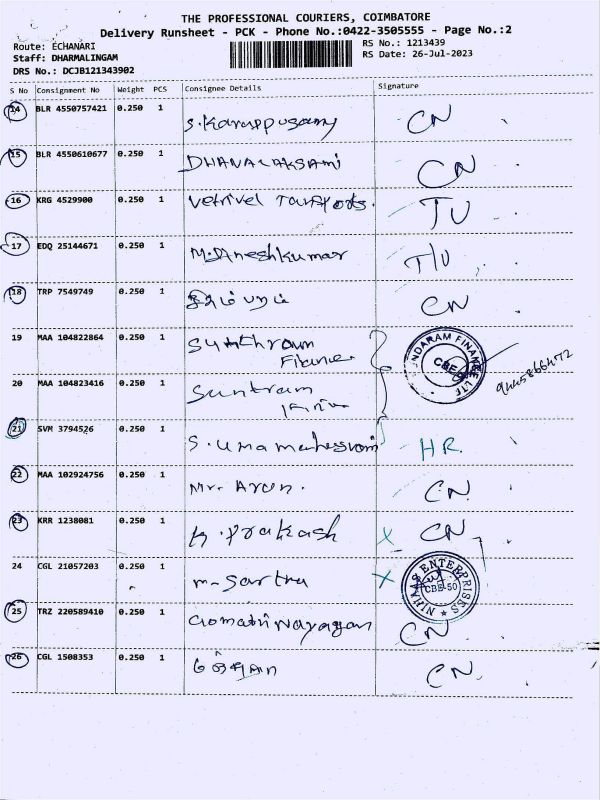 THE PROFESSIONAL COURIERS, COIMBATORE
Delivery Runsheet - PCK - Phone No.:0422-3505555 - Page No.:2
Route: ECHANARI
RS No.: 1213439
Staff: DHARMALINGAM
RS Date: 26-Jul-2023
DRS No.: DCJB121343902
S No Consignment No Weight PCS Consignee Details Signature
14 BLR 4550757421 0.250 1 S. Karuppusamy CN
15 BLR 4550610677 0.250 1 DHANALAKSAMI CN
16 KRG 4529900 0.250 1 Vetrivel TU
17 EDQ 25144671 0.250 1 M. Dineshkumar T/U
18 TRP 7549749 0.250 1 CN
19 MAA 104822864 0.250 1 Sunthram
Finance
SUNDARAM FINANCE LTD
CBE
20 MAA 104823416 0.250 1 Suntram
21 SVM 3794526 0.250 1 S. Umamaheswari HR
22 MAA 102924756 0.250 1 Mr. Arun. CN
23 KRR 1238081 0.250 1 Prakash x CN
24 CGL 21057203 0.250 1 x
ENTERPRISES
CBE-50
25 TRZ 220589410 0.250 1 Gomathinayagan CN
26 CGL 1508353 0.250 1 CN